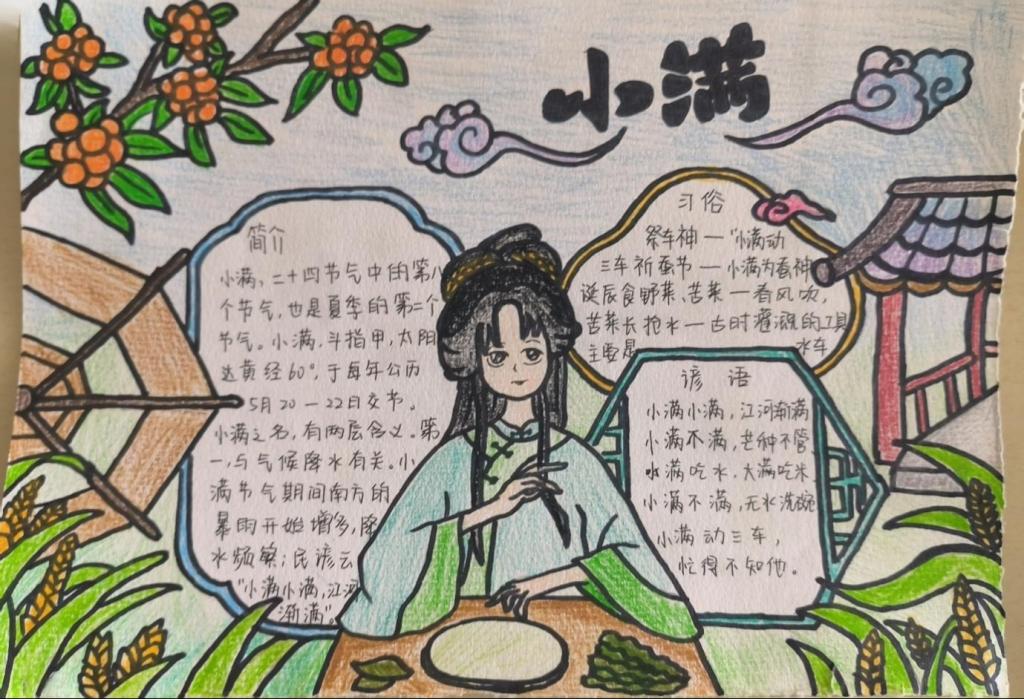 小满
简介
小满，二十四节气中的第八
个节气，也是夏季的第二个
节气。小满，斗指甲，太阳
达黄经60°，于每年公历
5月20—22日交节。
小满之名，有两层含义。第
一，与气候降水有关。小
满节气期间南方的
暴雨开始增多，降
水频繁；民谚云
“小满小满，江河
渐满”。
习俗
祭车神—“小满动
三车祈蚕节—小满为蚕神
诞辰食野菜、苦菜—看风吹，
苦菜长抢水—古时灌溉的工具
主要是 水车
谚语
小满小满，江河渐满
小满不满，芒种不管
水满吃水，大满吃米
小满不满，无水洗碗
小满动三车，
忙得不知他。